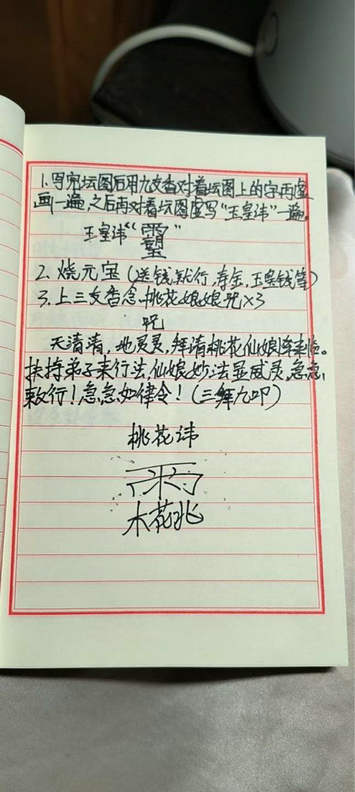 1.写完坛图后用九支香对着坛图上的字再虚
画一遍,之后再对着坛图虚写"玉皇讳"一遍。
玉皇讳"
2. 烧元宝(送钱就行,寿金,玉皇钱等)
3. 上三支香念桃花娘娘咒×3
咒
天清清,地灵灵,拜请桃花仙娘降来临。
扶持弟子来行法,仙娘妙法显威灵,急急
敕行!急急如律令!(三拜九叩)
桃花讳
木花兆